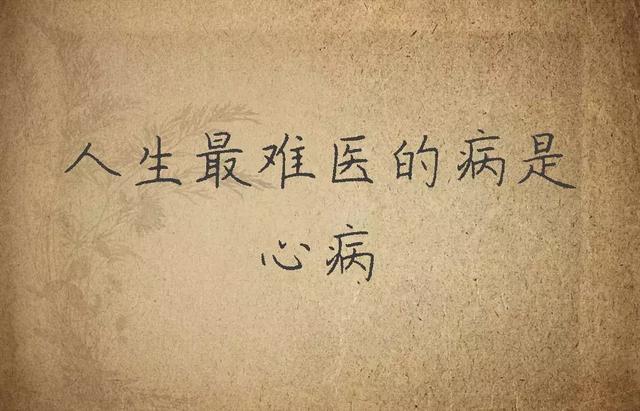 人生最难医的病是
心病